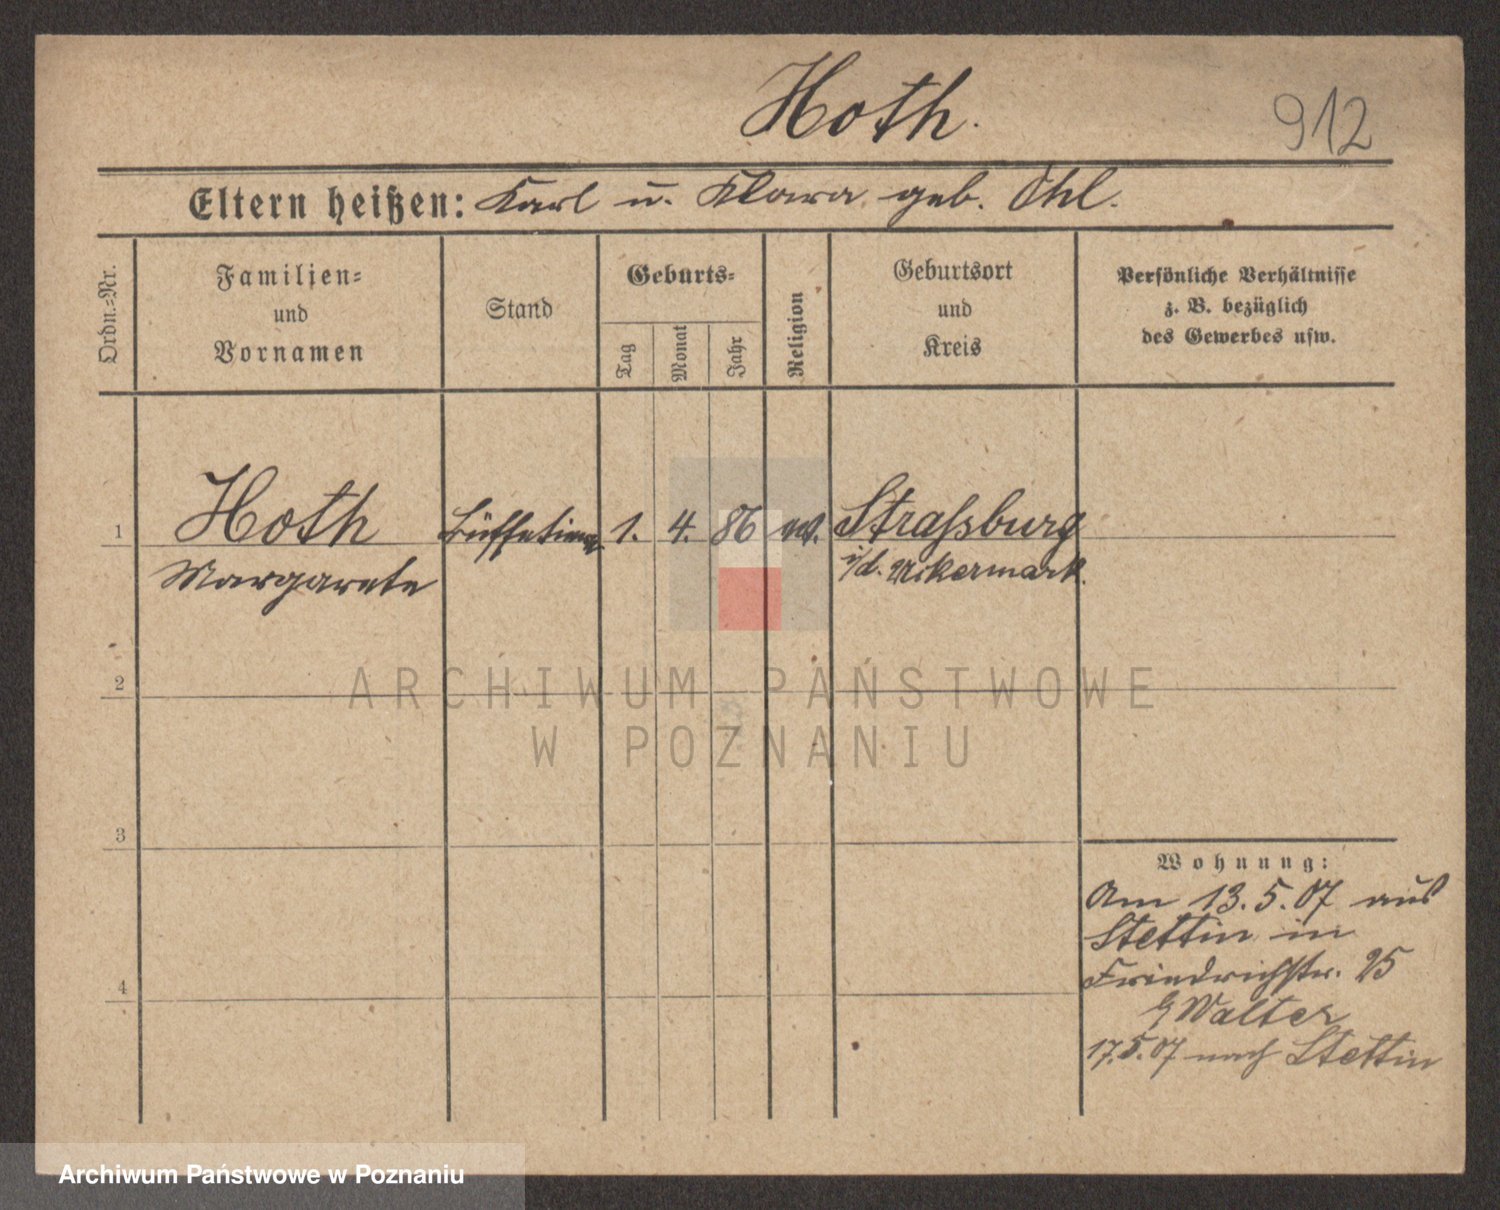 Hoth.
912
Eltern heißen: Karl u. Klara geb. Ohl.
Ordn.=Nr.
Familien=
und
Vornamen
Stand
Geburts=
Tag
Monat
Jahr
Religion
Geburtsort
und
Kreis
Persönliche Verhältnisse
z. B. bezüglich
des Gewerbes usw.
1
Hoth
Margarete
Büffetiere
1.
4.
86
ev.
Straßburg
i/d. Uckermark.
2
3
4
Wohnung:
Am 13.5.07 aus
Stettin in
Friedrichstr. 25
Walter
17.5.07 nach Stettin
ARCHIWUM PAŃSTWOWE
W POZNANIU
Archiwum Państwowe w Poznaniu